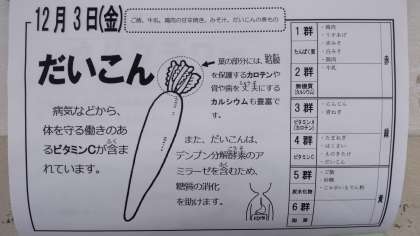 12月3日(金)
ご飯、牛乳、鶏肉の甘辛焼き、みそ汁、だいこんの煮もの
だいこん
葉の部分には、粘膜
を保護するカロテンや
骨や歯を丈夫にする
カルシウムも豊富で
す。
病気などから、
体を守る働きのあ
るビタミンCが含ま
れています。
また、だいこんは、
デンプン分解酵素のア
ミラーゼを含むため、
糖質の消化
を助けます。
1群
たんぱく質
・鶏肉
・うすあげ
・赤みそ
・白みそ
・豚肉
2群
無機質
(カルシウム)
・牛乳
赤
3群
ビタミンA
(カロテン)
・にんじん
・青ねぎ
4群
ビタミンC
・たまねぎ
・はくさい
・えのきたけ
・だいこん
緑
5群
炭水化物
・ご飯
・砂糖
・じゃがいもでん粉
6群
脂肪
黄